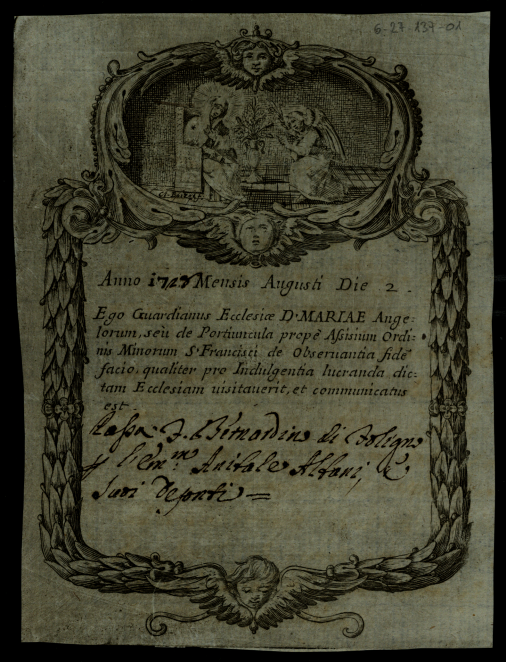 6-27-137-01
Anno 1723 Mensis Augusti Die 2.
Ego Guardianus Ecclesiæ D. MARIAE Ange=
lorum, seù de Portiuncula propè Assisium Ordi=
nis Minorum S. Francisci de Obseruantia fidē
facio, qualiter pro Indulgentia lucranda dic=
tam Ecclesiam uisitauerit, et communicatus
est
Bernardino di
Annibale Albani, e
Suoi